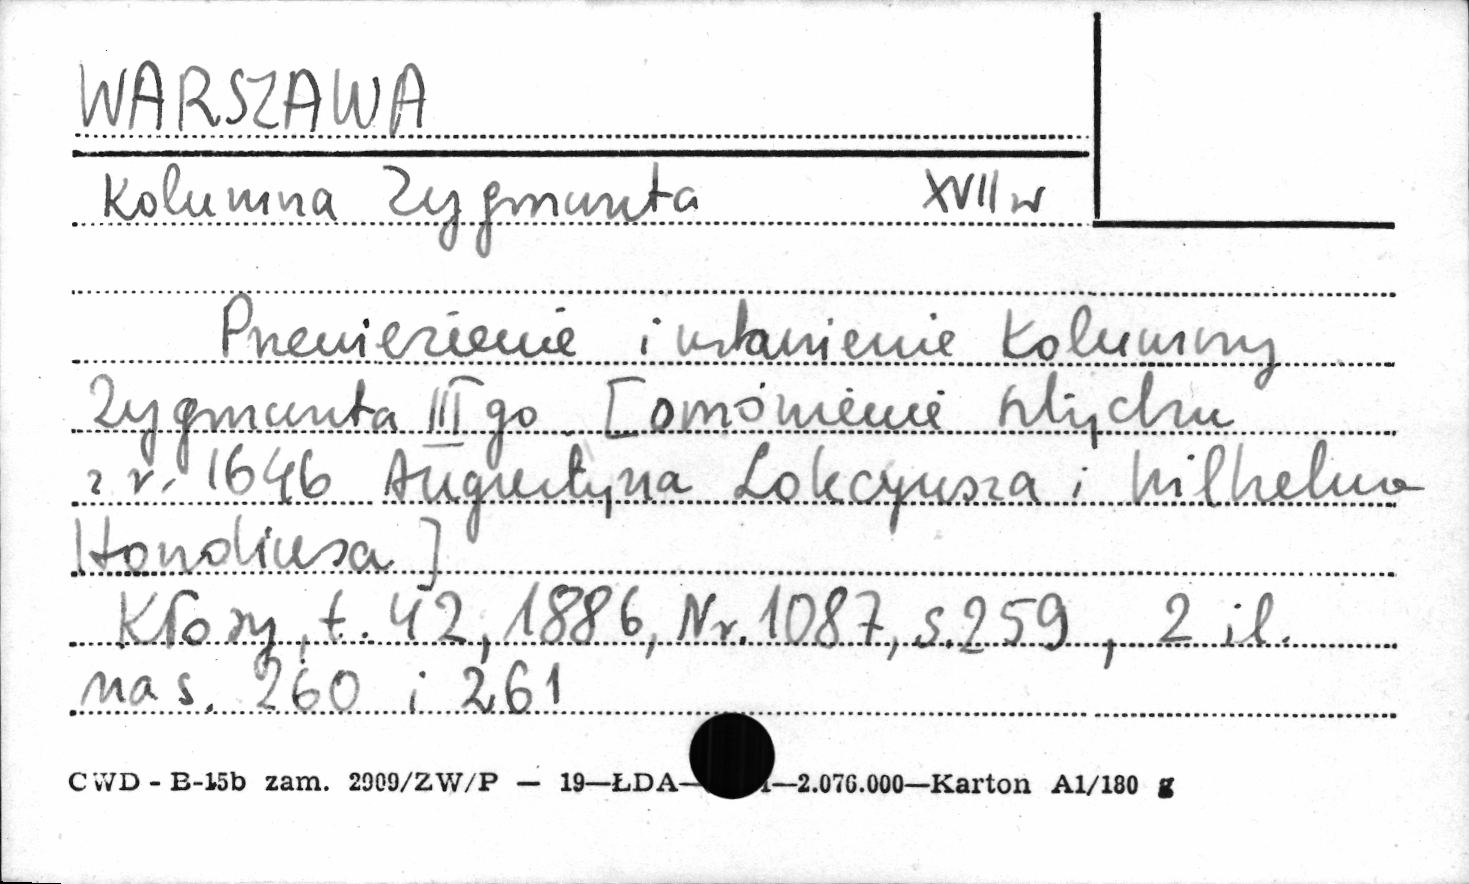 WARSZAWA
Kolumna Zygmunta XVII w
Przewiezienie i ustawienie Kolumny
Zygmunta III go [omówienie sztychu
z r. 1646 Augustyna Lokcyusza i Wilhelma
Hondiusa]
Kłosy, t. 42, 1886, Nr. 1087, s. 259, 2 il.
na s. 260 i 261
CWD - B-15b zam. 2909/ZW/P — 19—ŁDA— —2.076.000—Karton A1/180 g